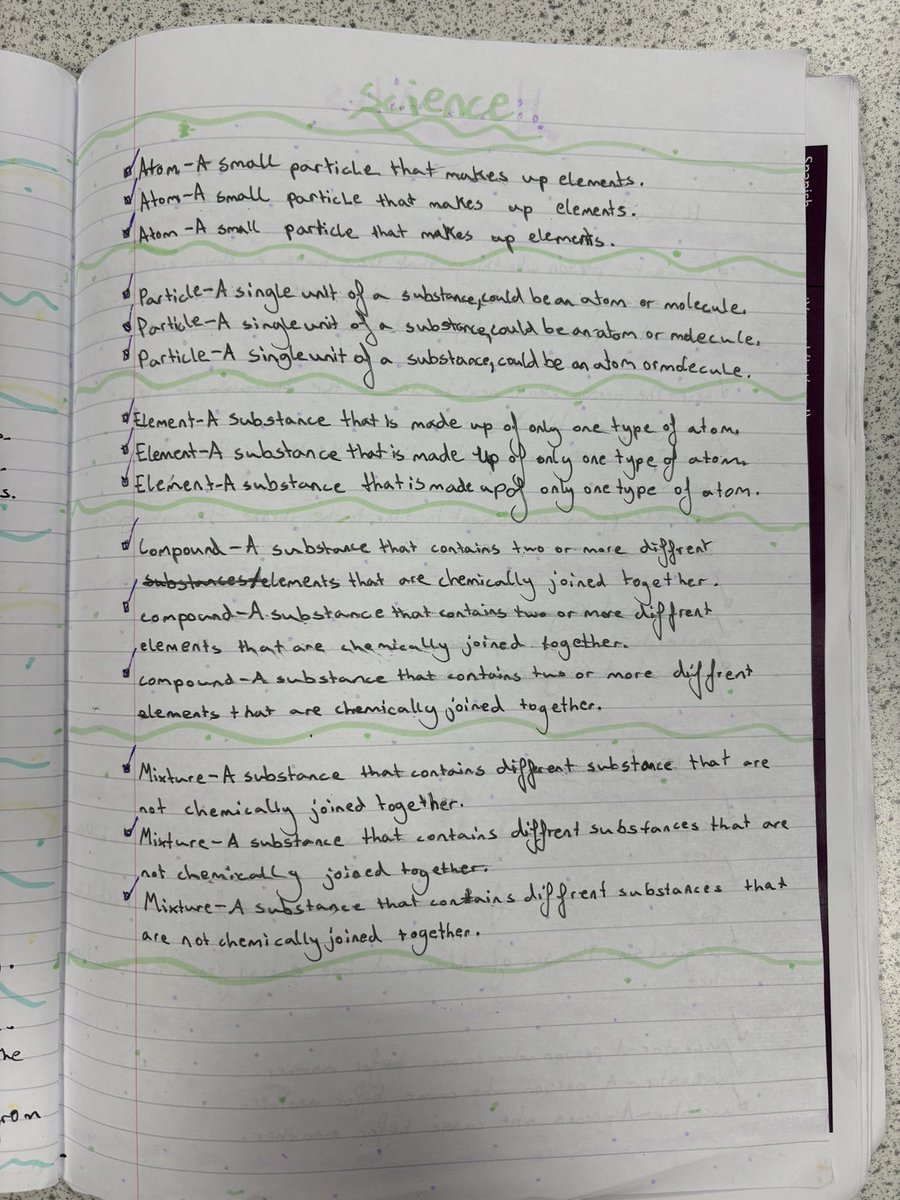 science!!
Atom-A small particle that makes up elements.
Atom-A small particle that makes up elements.
Atom-A small particle that makes up elements.
Particle-A single unit of a substance, could be an atom or molecule.
Particle-A single unit of a substance, could be an atom or molecule.
Particle-A single unit of a substance, could be an atom or molecule.
Element-A substance that is made up of only one type of atom.
Element-A substance that is made up of only one type of atom.
Element-A substance that is made up of only one type of atom.
Compound-A substance that contains two or more different
substances/elements that are chemically joined together.
compound-A substance that contains two or more diffrent
elements that are chemically joined together.
compound-A substance that contains two or more diffrent
elements that are chemically joined together.
Mixture-A substance that contains different substance that are
not chemically joined together.
Mixture-A substance that contains diffrent substances that are
not chemically joined together.
Mixture-A substance that contains diffrent substances that
are not chemically joined together.
Spanish
s.
he
rom